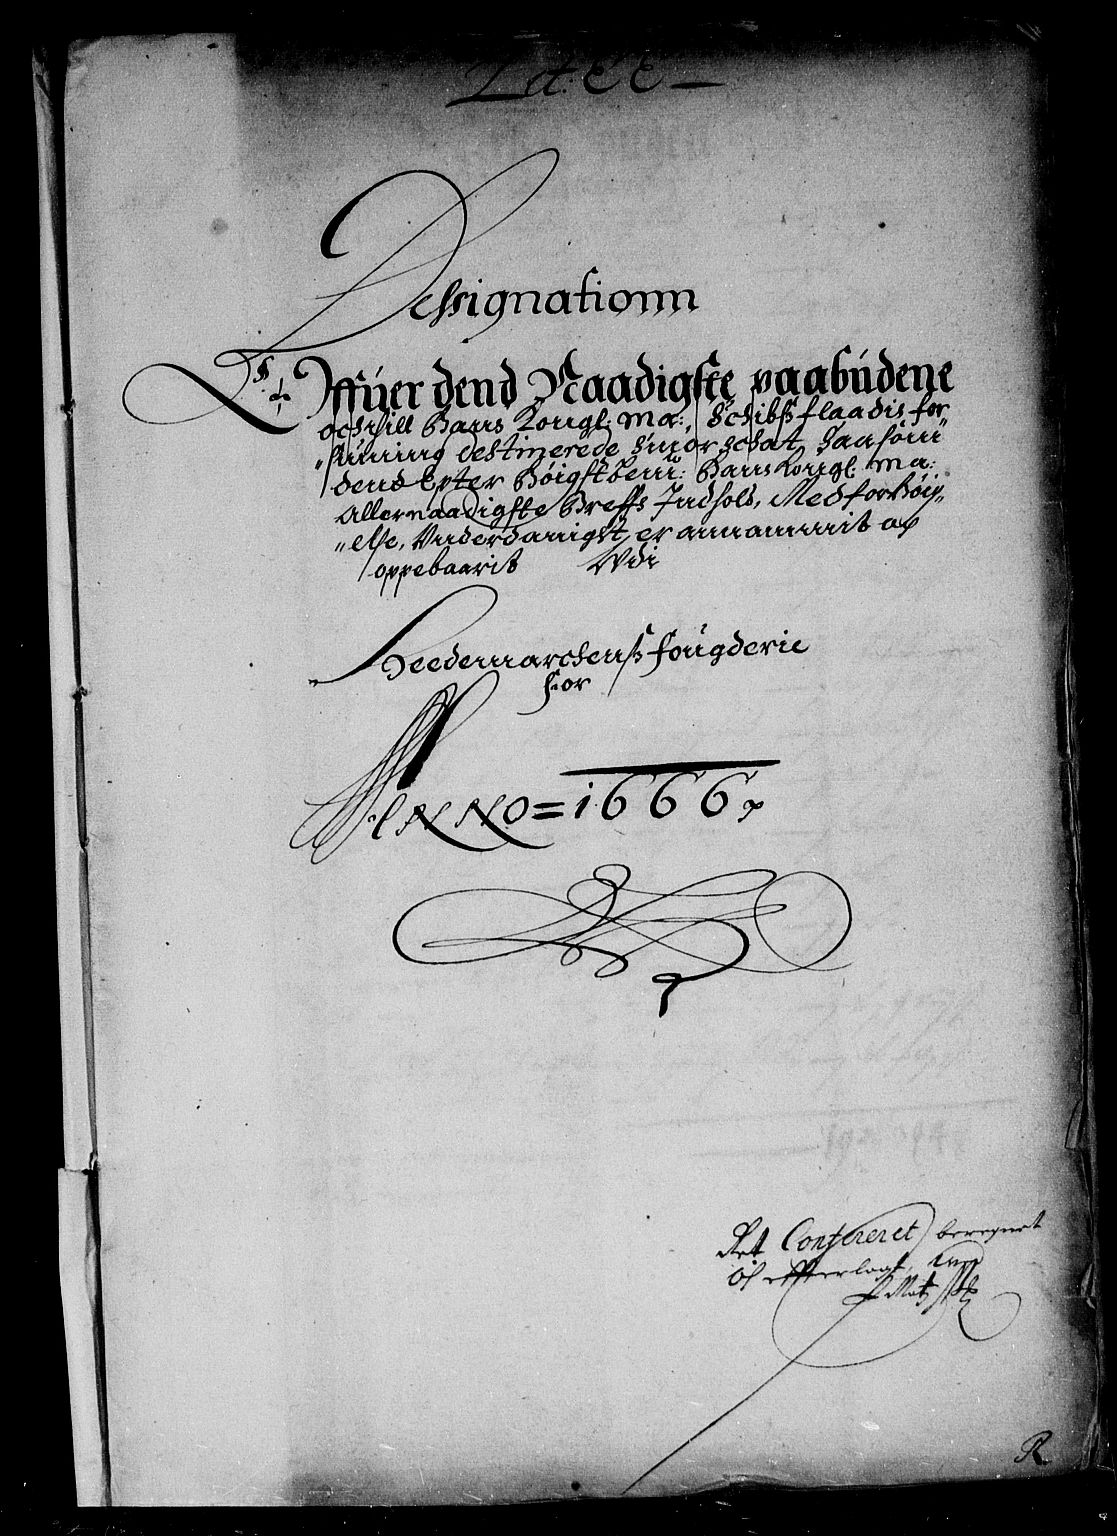 Lit: E E
Dessignationn
Offuer dend Naadigste paabudene
och till Hans Kongl: Ma:, Schibss flaadis for
"suning destinerede Smør schat, Saasom
dend Epter Høigstbem: Hans Kongl: Ma:
Allernaadigste Breffs Indhold, Med forhøiy„
„else, Vnderdanigst, er annammit og
oppebaarit Vdi
Heedemarckenss fougderie
for
ANNO = 1666
Ret Confereret beregnet
oc efterlagt,
R